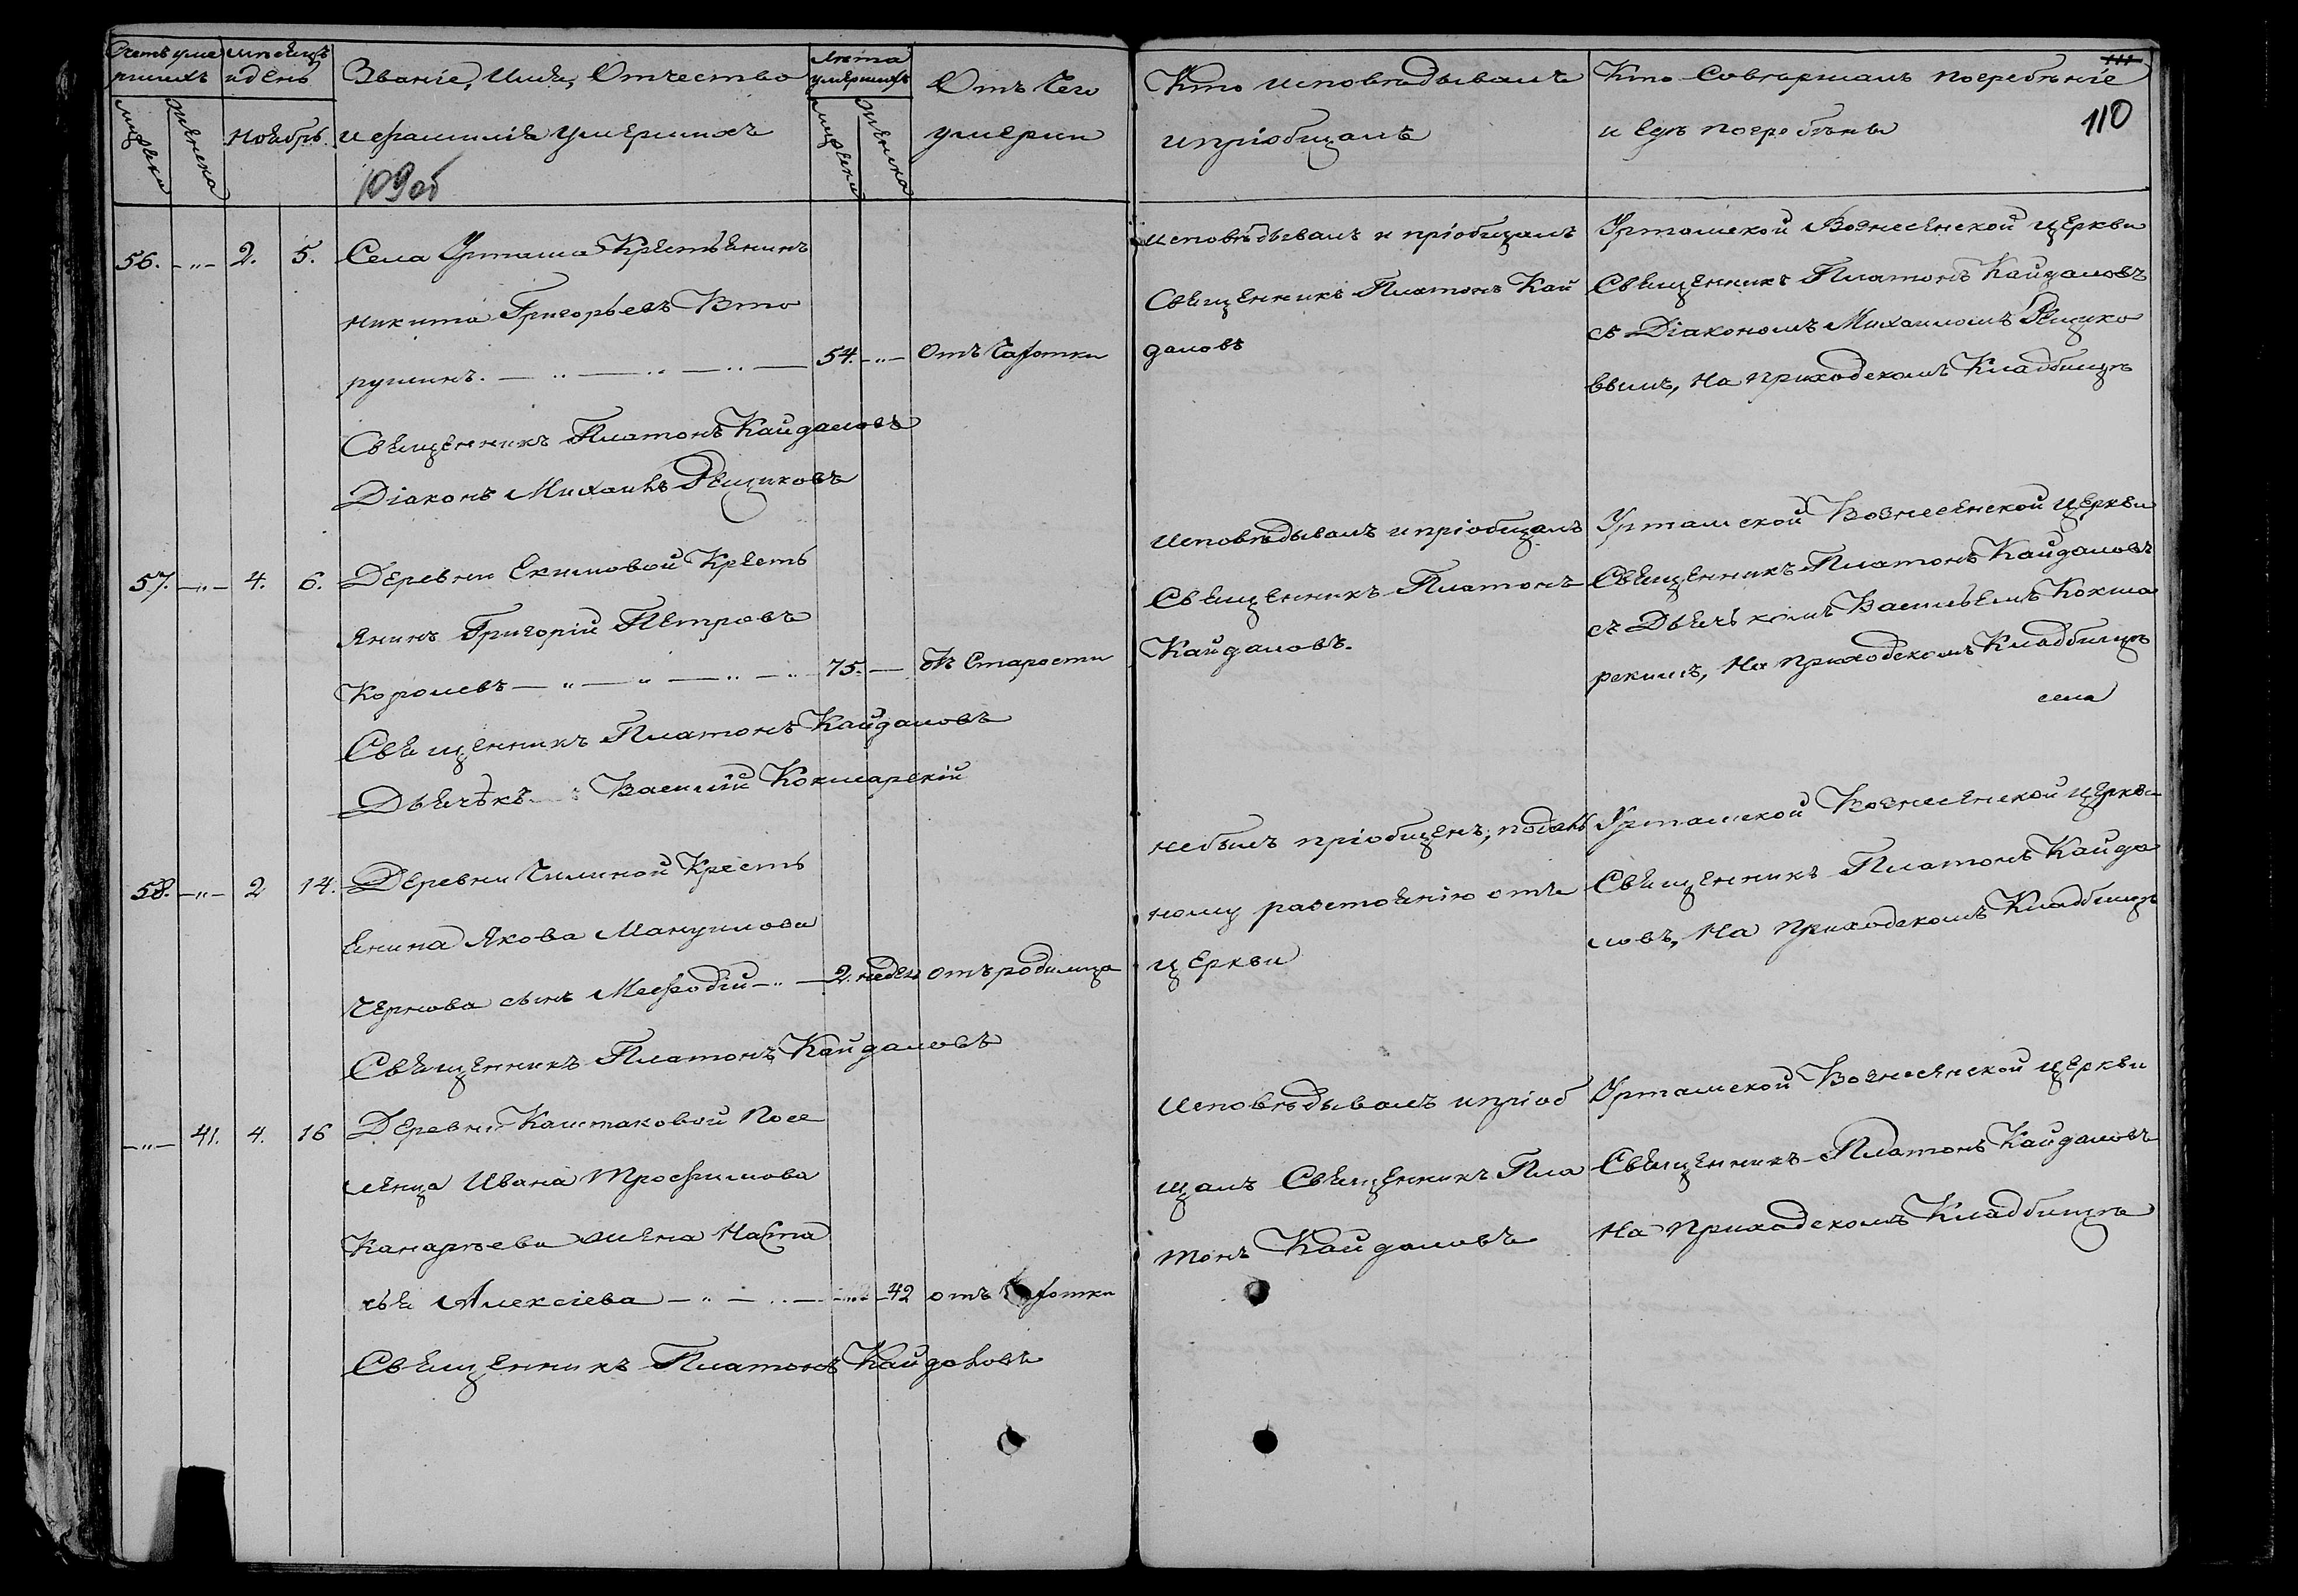 Счетъ уме
ршихъ
мѣсяцъ
и день
Званіе, Имя, Отчество
Лета
умершихъ
Отъ Чего
мужска
женска
Ноябрь.
и фамилія умершихъ
мужска
женска
умерли
109об
56. -„- 2. 5. Села Уртама Крестьянинъ
Никита Григорьевъ Вто
рушинъ. 54. -„- Отъ Чахотки
Священникъ Платонъ Кайдаловъ
Діаконъ Михаилъ Рещиковъ
57. -„- 4. 6. Деревни Екимовой Кресть
янинъ Григорій Петровъ
Королевъ 75. — Отъ Старости
Священникъ Платонъ Кайдаловъ
Дьячекъ Василій Кокшарскій
58. -„- 2 14. Деревни Чилиной Кресть
янина Якова Мануилова
Чернова сынъ Мефодій 2. недел отъ родимца
Священникъ Платонъ Кайдаловъ
-„- 41. 4. 16 Деревни Каштаковой Посе
ленца Ивана Трофимова
Канарѣева жена Наста
сья Алексіева -„- 42 отъ Чахотки
Священникъ Платонъ Кайдаловъ
Кто исповѣдывалъ
и пріобщалъ
Кто Совершалъ погребѣніе
и Гдѣ погребѣны
111
110
исповѣдывалъ и пріобщалъ
Священникъ Платонъ Кай
даловъ
Уртамской Вознесенской церкви
Священникъ Платонъ Кайдаловъ
съ Діакономъ Михаиломъ Рещико
вымъ, На приходскомъ Кладбищѣ
Исповѣдывалъ и пріобщалъ
Священникъ Платонъ
Кайдаловъ.
Уртамской Вознесенской церкви
Священникъ Платонъ Кайдаловъ
съ Дьячькомъ Васильемъ Кокша
рскимъ, На приходскомъ Кладбищѣ
села
небылъ пріобщенъ, подаль
ному разстоянію отъ
церкви
Уртамской Вознесенской церкви
Священникъ Платонъ Кайда
ловъ, На приходскомъ Кладбищѣ
Исповѣдывалъ и пріоб
щалъ Священникъ Пла
тонъ Кайдаловъ
Уртамской Вознесенской церкви
Священникъ Платонъ Кайдаловъ
На приходскомъ Кладбищѣ